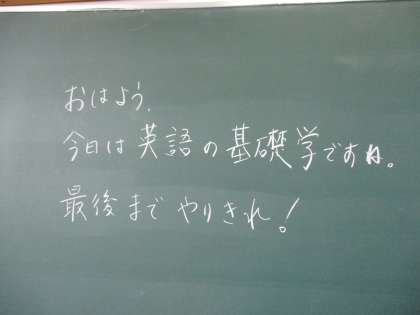 おはよう.
今日は英語の基礎学ですね。
最後までやりきれ!